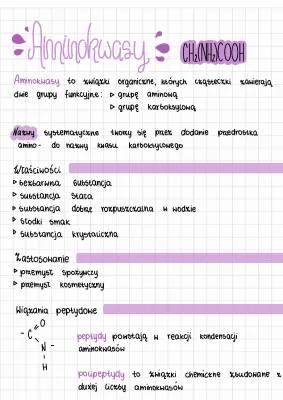 Aminokwasy CH₂(NH₂)COOH
Aminokwasy to związki organiczne, których cząsteczki zawierają
dwie grupy funkcyjne: ▹ grupę aminową
▹ grupę karboksylową
Nazwy systematyczne tworzy się przez dodanie przedrostka
amino- do nazwy kwasu karboksylowego
Właściwości
▹ bezbarwna substancja
▹ substancja stała
▹ substancja dobrze rozpuszczalna w wodzie
▹ słodki smak
▹ substancja krystaliczna
Zastosowanie
▹ przemysł spożywczy
▹ przemysł kosmetyczny
Wiązania peptydowe
O
- C
N -
H
peptydy powstają w reakcji kondensacji
aminokwasów
polipeptydy to związki chemiczne zbudowane z
dużej liczby aminokwasów